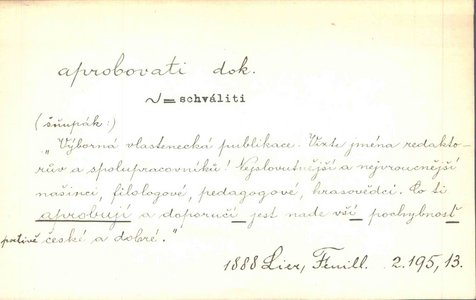 aprobovati dok.
schváliti
(šňupák:)
„Výborná vlastenecká publikace. Viztu jména redakto-
rův a spolupracovníků! Nejslovutnější a nejvroucnější
našinci, filologové, pedagogové, krasovědci. Co ti
aprobují a doporučí jest nade vší pochybnosť
poctivě české a dobré."
1888 Lier, Feuill. 2.195,13.